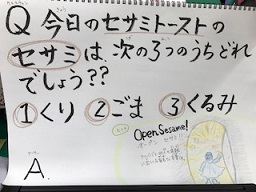 Q 今日のセサミトーストの
セサミは、次の3つのうちどれ
でしょう??
①くり ②ごま ③くるみ
Open Sesame!
A.